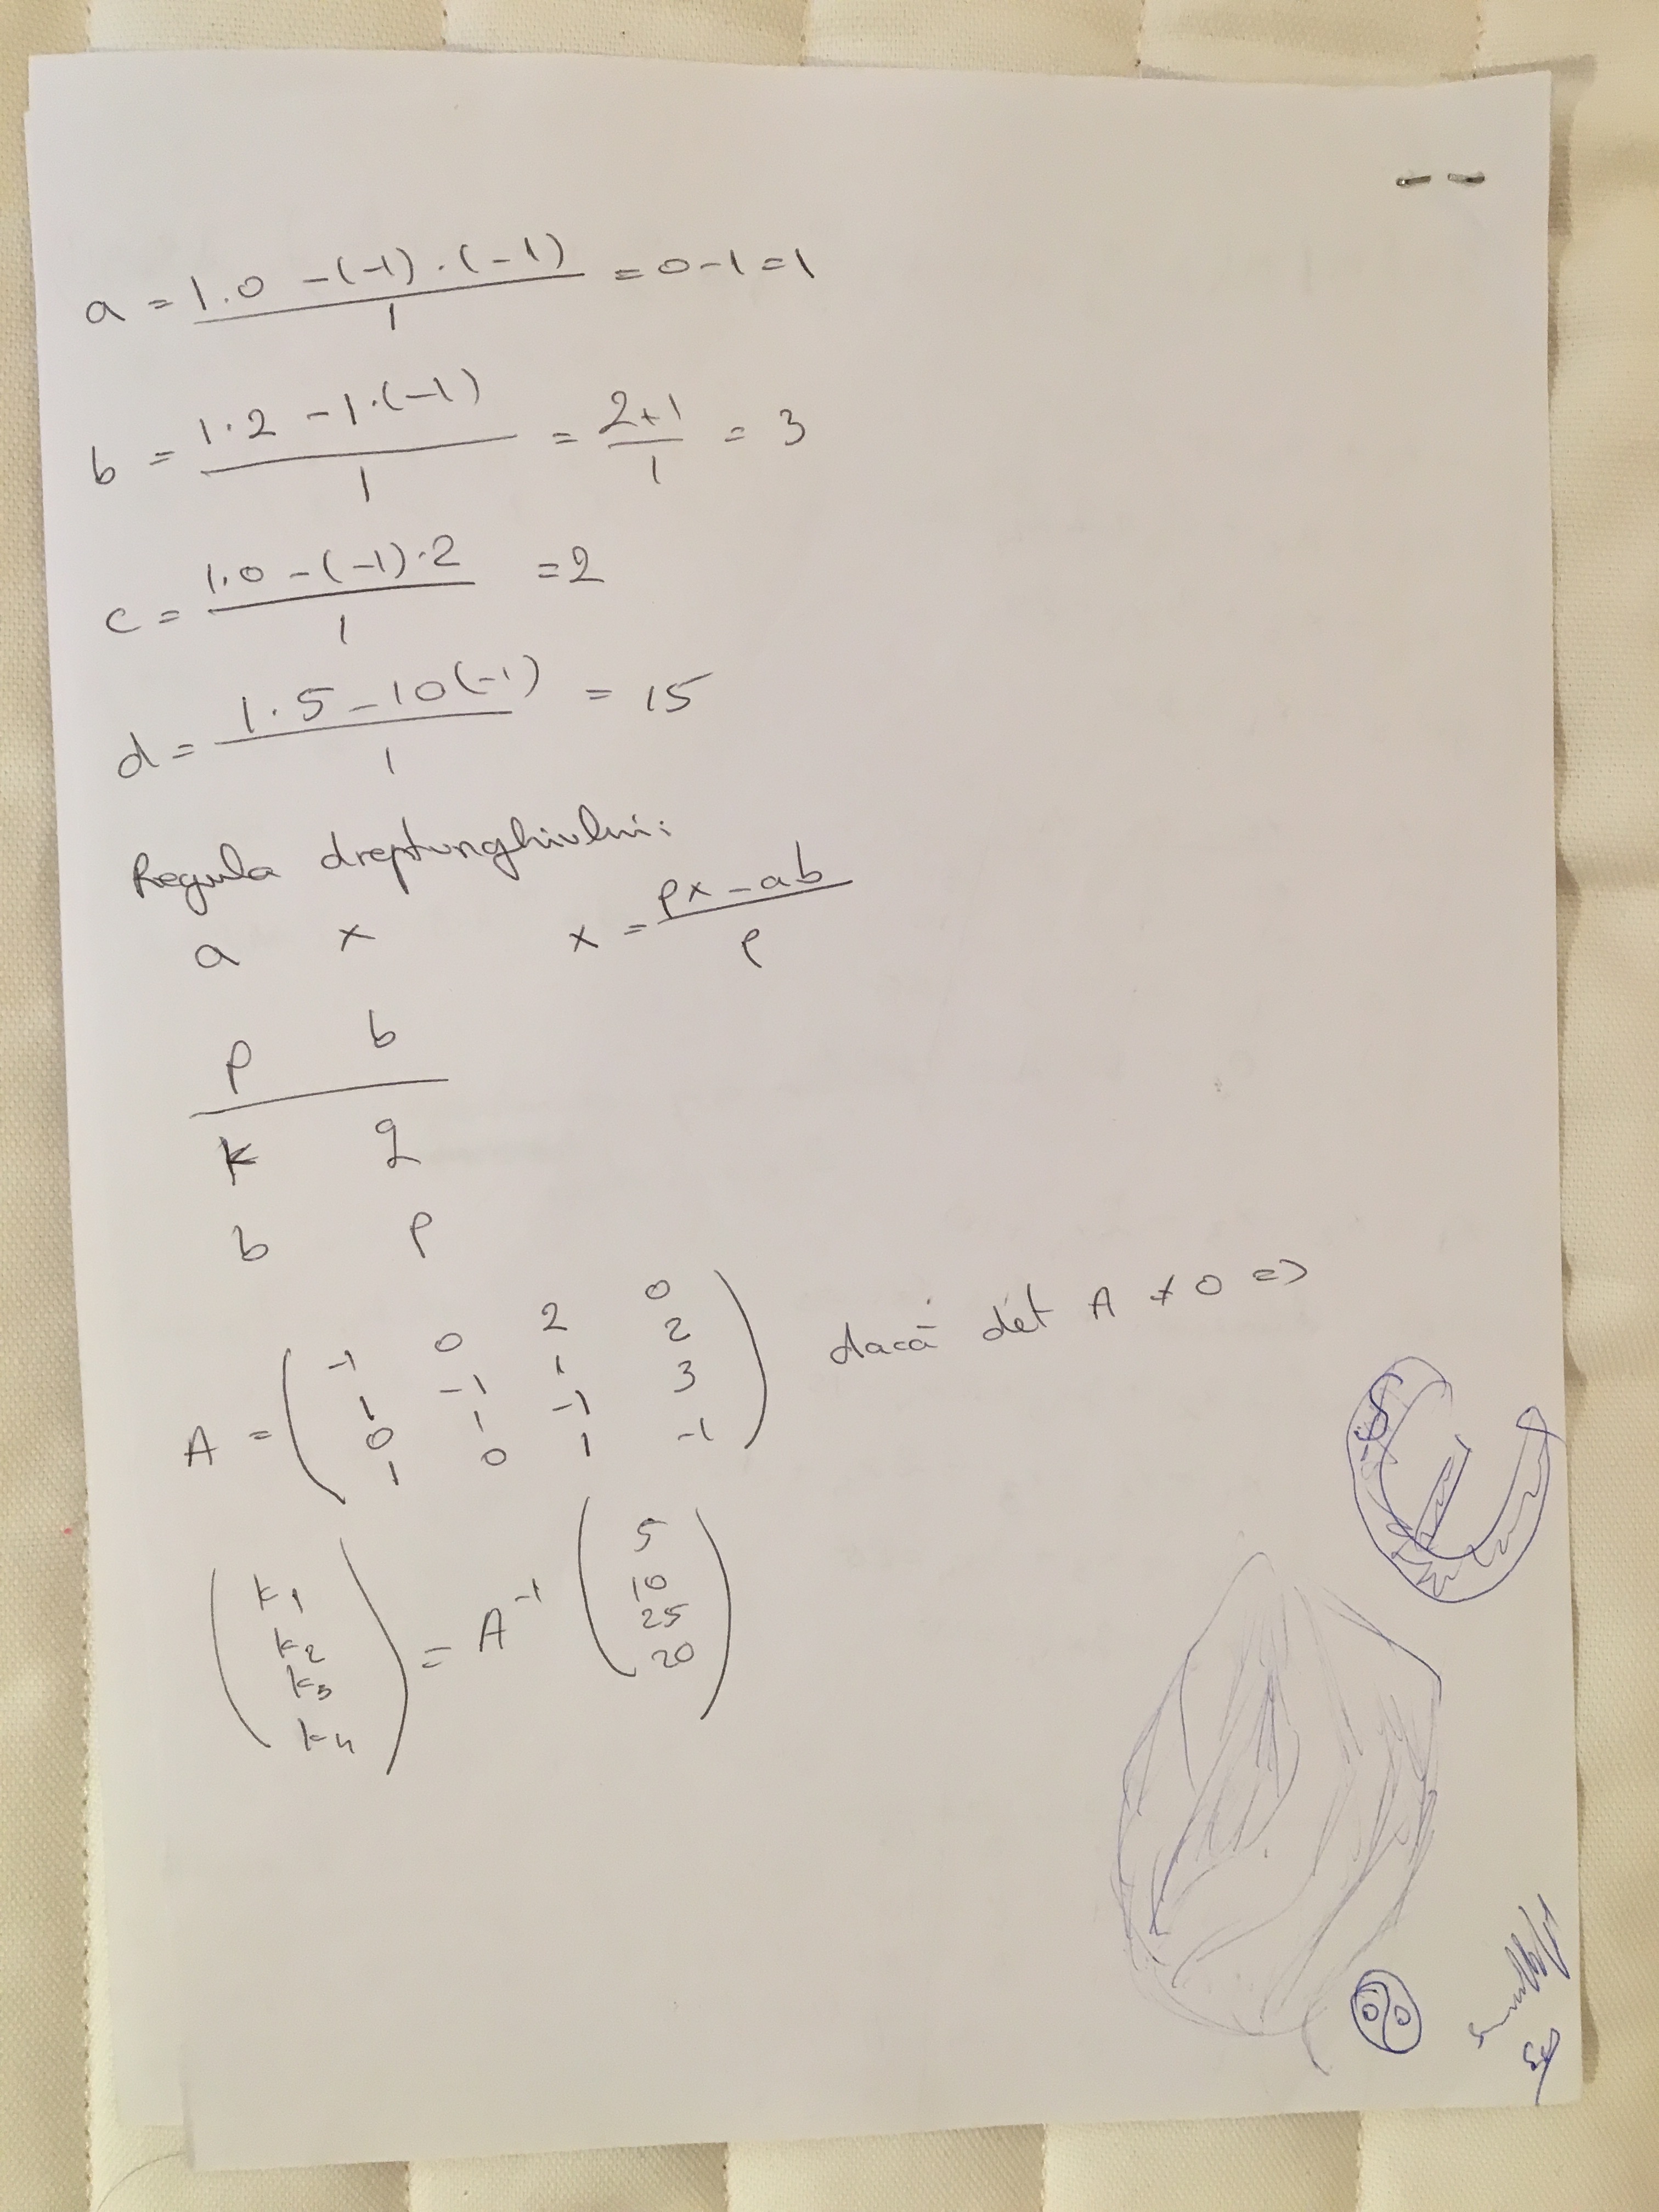 a = 1.0 -(-1).(-1) / 1 = 0-1=1
b = 1.2 -1.(-1) / 1 = 2+1 / 1 = 3
c = 1.0 -(-1).2 / 1 =2
d = 1.5 -10(-1) / 1 = 15
Regula dreptunghiului:
a x x = px - ab / p
p b
k q
b p
A = ( -1 0 2 0
1 -1 1 2
0 1 -1 3
1 0 1 -1 ) dacă det A ≠ 0 =>
( k1 k2 k3 k4 ) = A^-1 ( 5 10 25 20 )